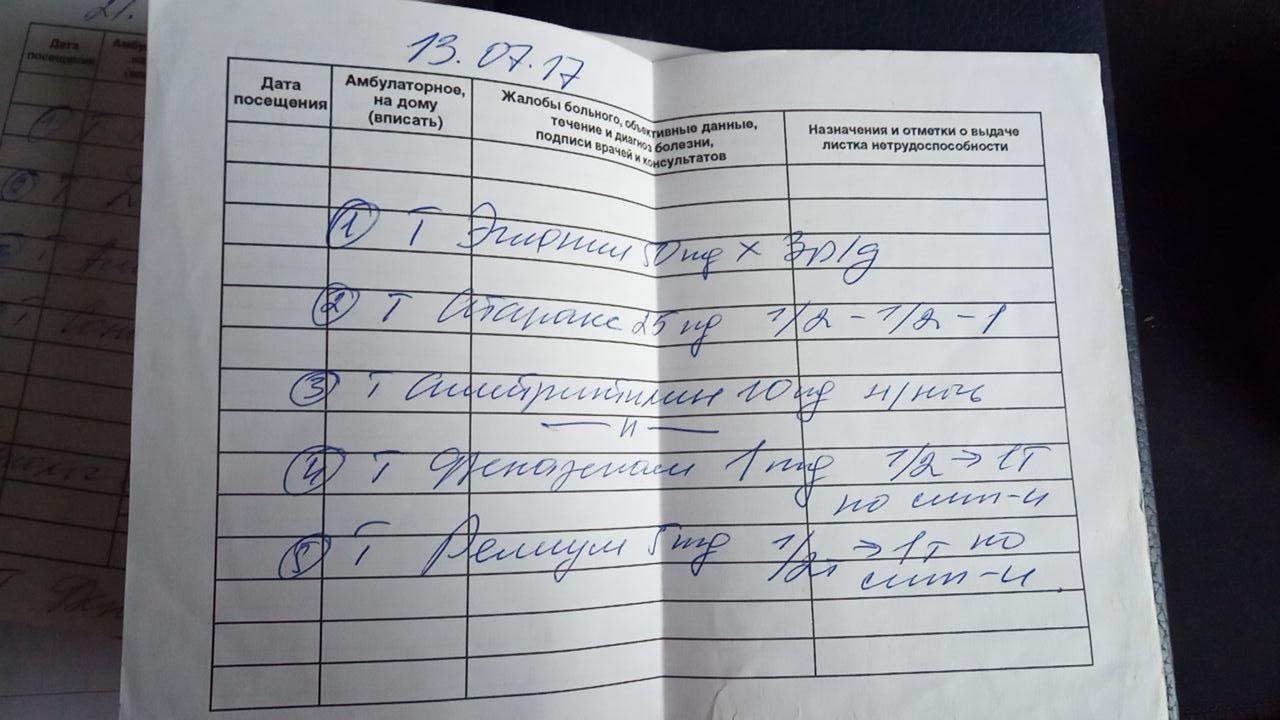 13.07.17
Дата посещения
Амбулаторное, на дому (вписать)
Жалобы больного, объективные данные, течение и диагноз болезни, подписи врачей и консультатов
Назначения и отметки о выдаче листка нетрудоспособности
① Т Эглонил 50 mg × 3р/д
② Т Атаракс 25 mg 1/2 - 1/2 - 1
③ Т Амитриптилин 10 mg н/ночь
— и —
④ Т Феназепам 1 mg 1/2 → 1т
по сит-и
⑤ Т Релиум 5 mg 1/2т → 1т по
сит-и.
Дата
посещения